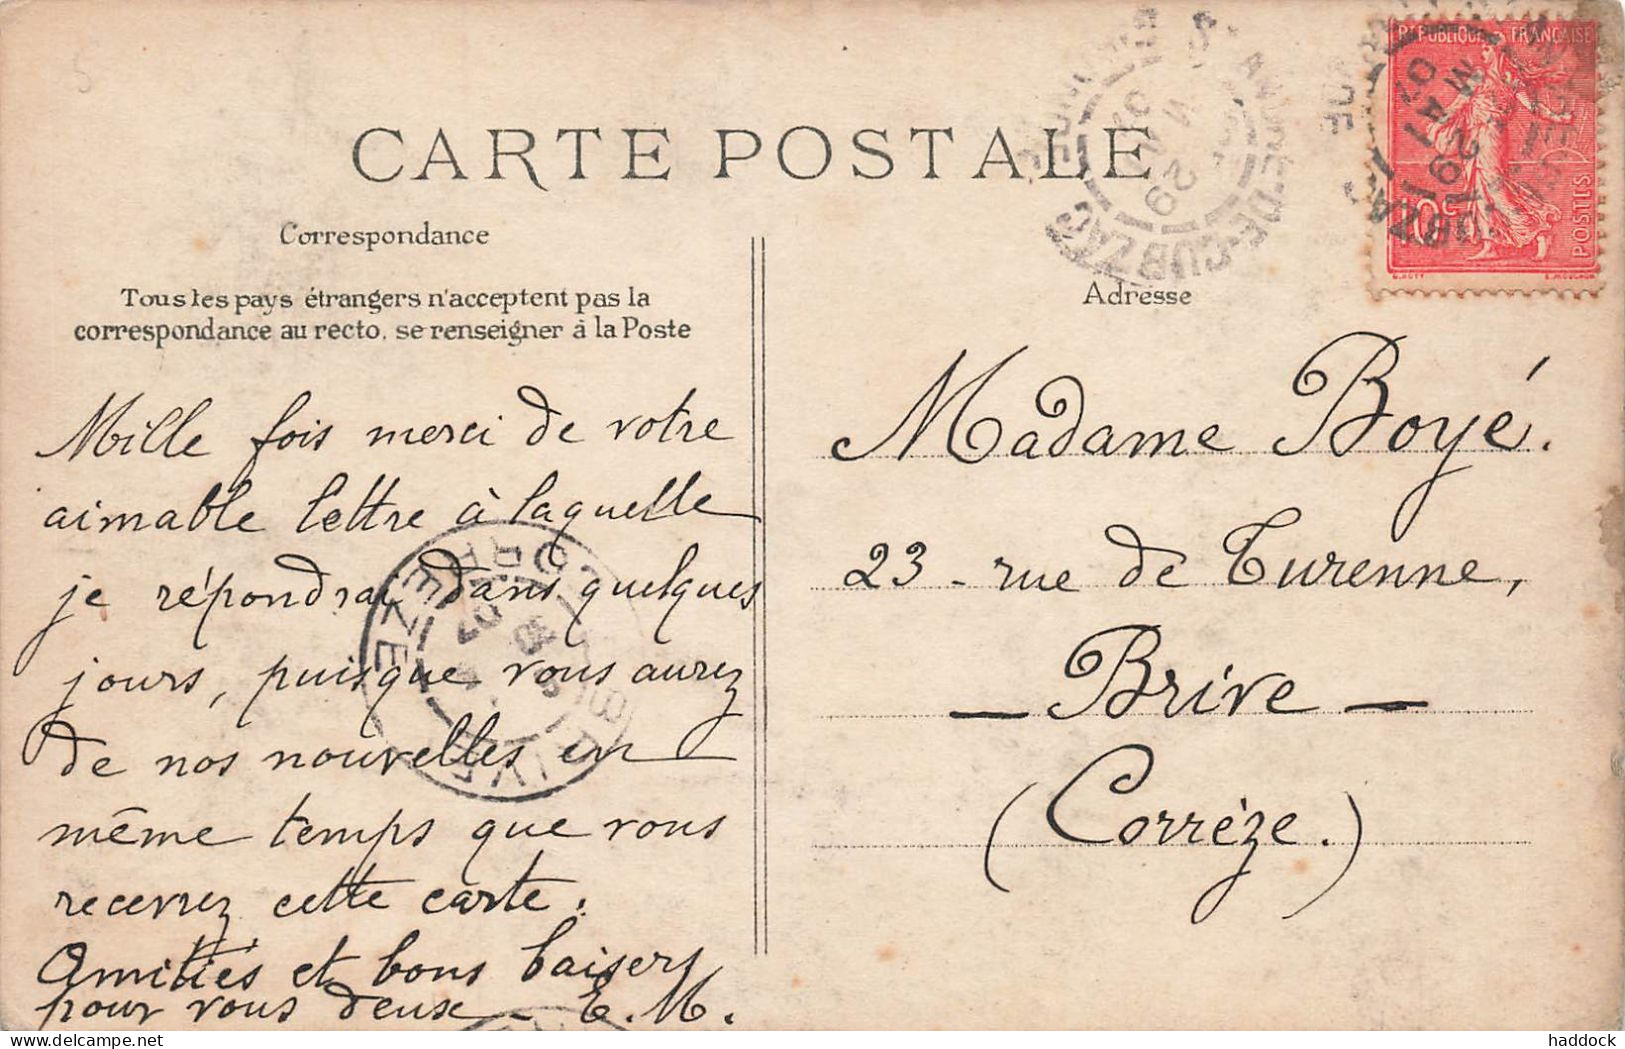 CARTE POSTALE
Correspondance
Tous les pays étrangers n'acceptent pas la
correspondance au recto, se renseigner à la Poste
Mille fois merci de votre
aimable lettre à laquelle
je répondrai dans quelques
jours, puisque vous aurez
de nos nouvelles en
même temps que vous
recevrez cette carte.
Amitiés et bons baisers
pour vous deux - E. M.
Adresse
Madame Boyé.
23 - rue de Turenne,
- Brive -
(Corrèze.)
REPUBLIQUE FRANÇAISE
10c
POSTES
ST ANDRE-DE-CUBZAC
29
07
BRIVE
CORREZE
haddock